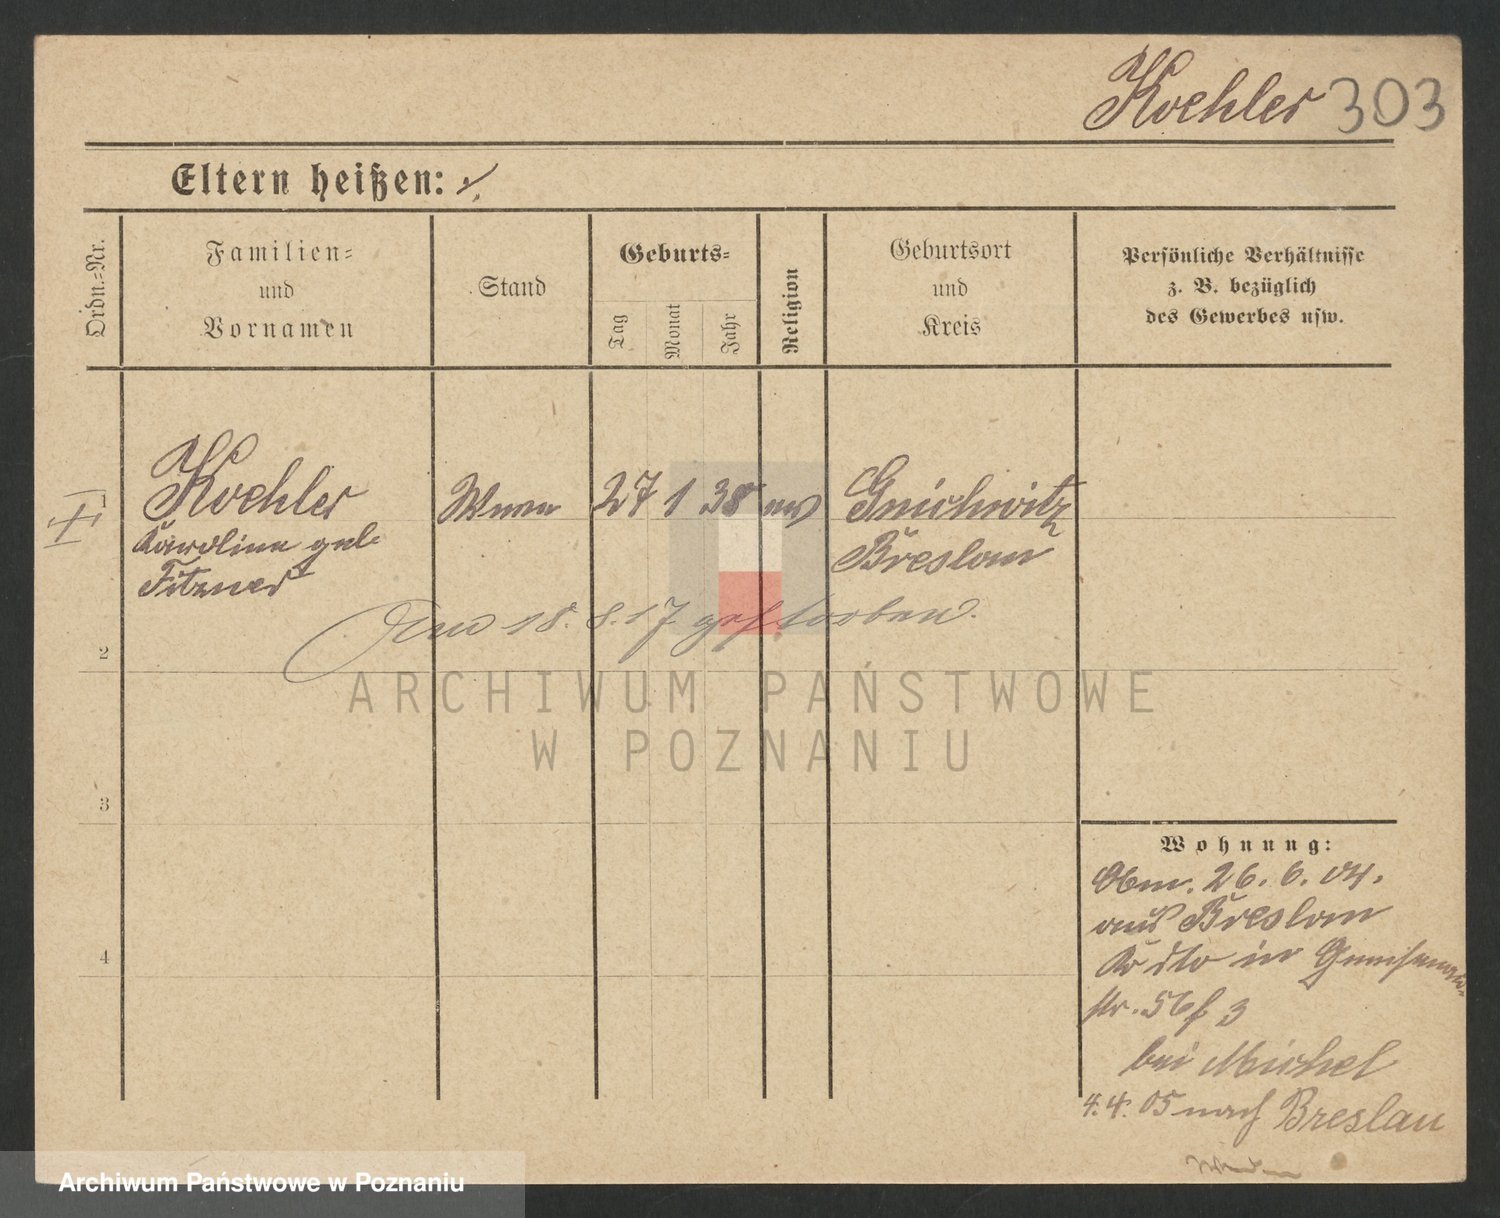 Koehler 303
Eltern heißen: ./.
Ordn.-Nr.
Familien-
und
Vornamen
Stand
Geburts-
Tag
Monat
Jahr
Religion
Geburtsort
und
Kreis
Persönliche Verhältnisse
z. B. bezüglich
des Gewerbes usw.
1
Koehler
Karoline geb.
Fitzner
Wwe
27 1 38 ev
Gnichwitz
Breslau
Am 18. 8. 17 gestorben.
2
3
4
ARCHIWUM PAŃSTWOWE
W POZNANIU
Wohnung:
26. 6. 04.
aus Breslau
in Gneisenau-
str. 56 f 3
bei Michel
4. 4. 05 nach Breslau
Archiwum Państwowe w Poznaniu